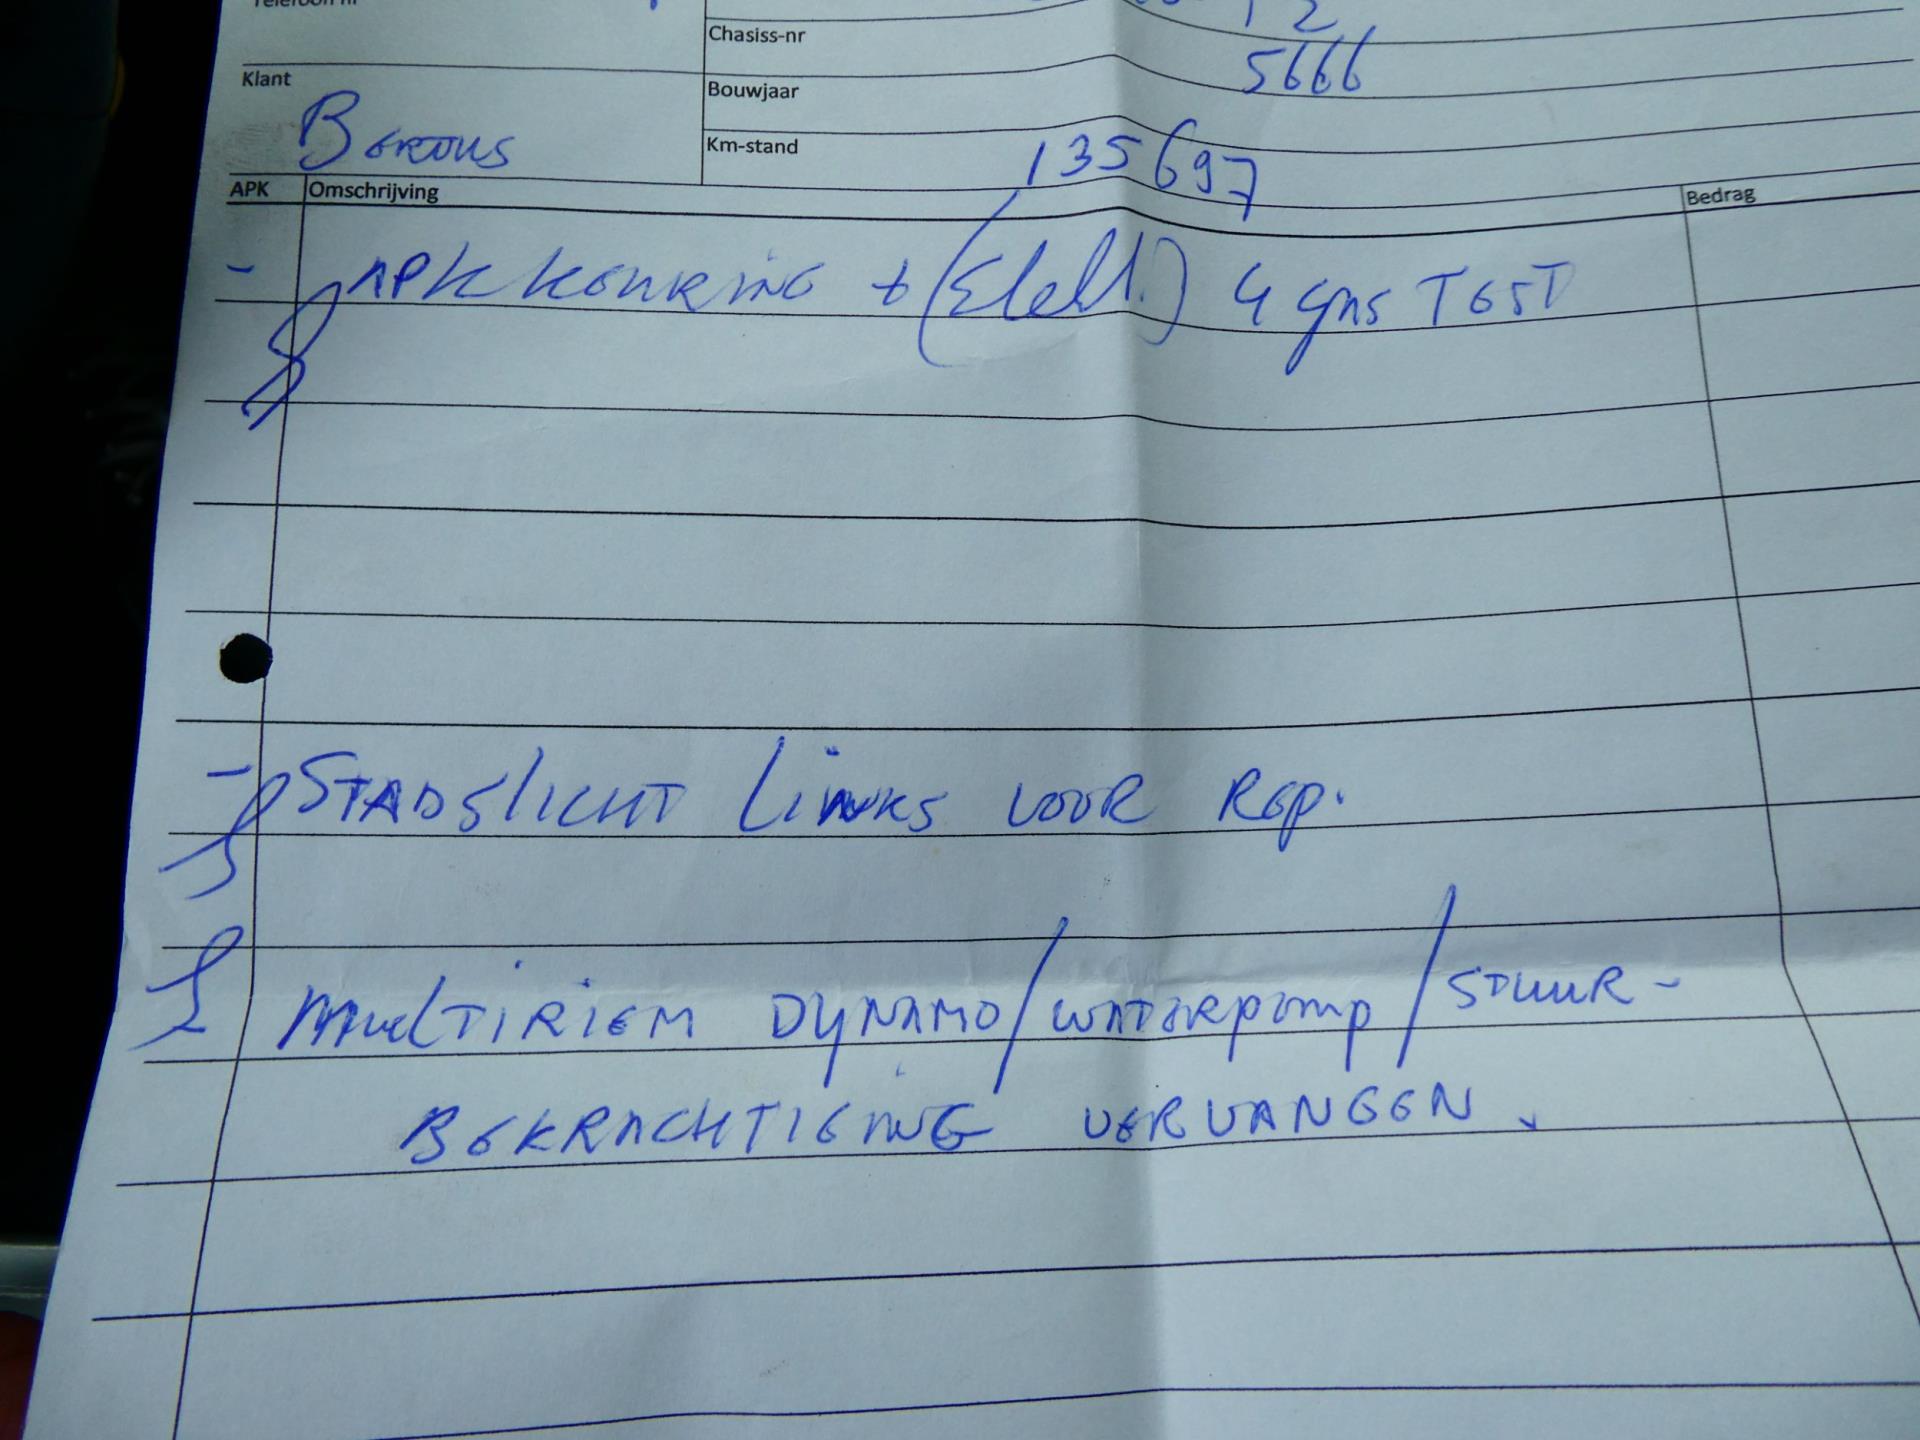 Telefoon nr
12
Chasiss-nr
5666
Klant
Bouwjaar
Km-stand
135697
APK Omschrijving Bedrag
- APK KEURING + (Elekt.) 4 gas TEST
- STADSLICHT LINKS VOOR REP.
MULTIRIEM DYNAMO/WATERPOMP/STUUR-
BEKRACHTIGING VERVANGEN.